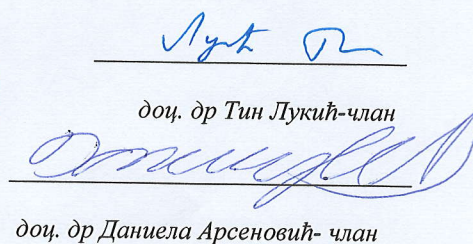 доц. др Тин Лукић-члан
доц. др Даниела Арсеновић- члан